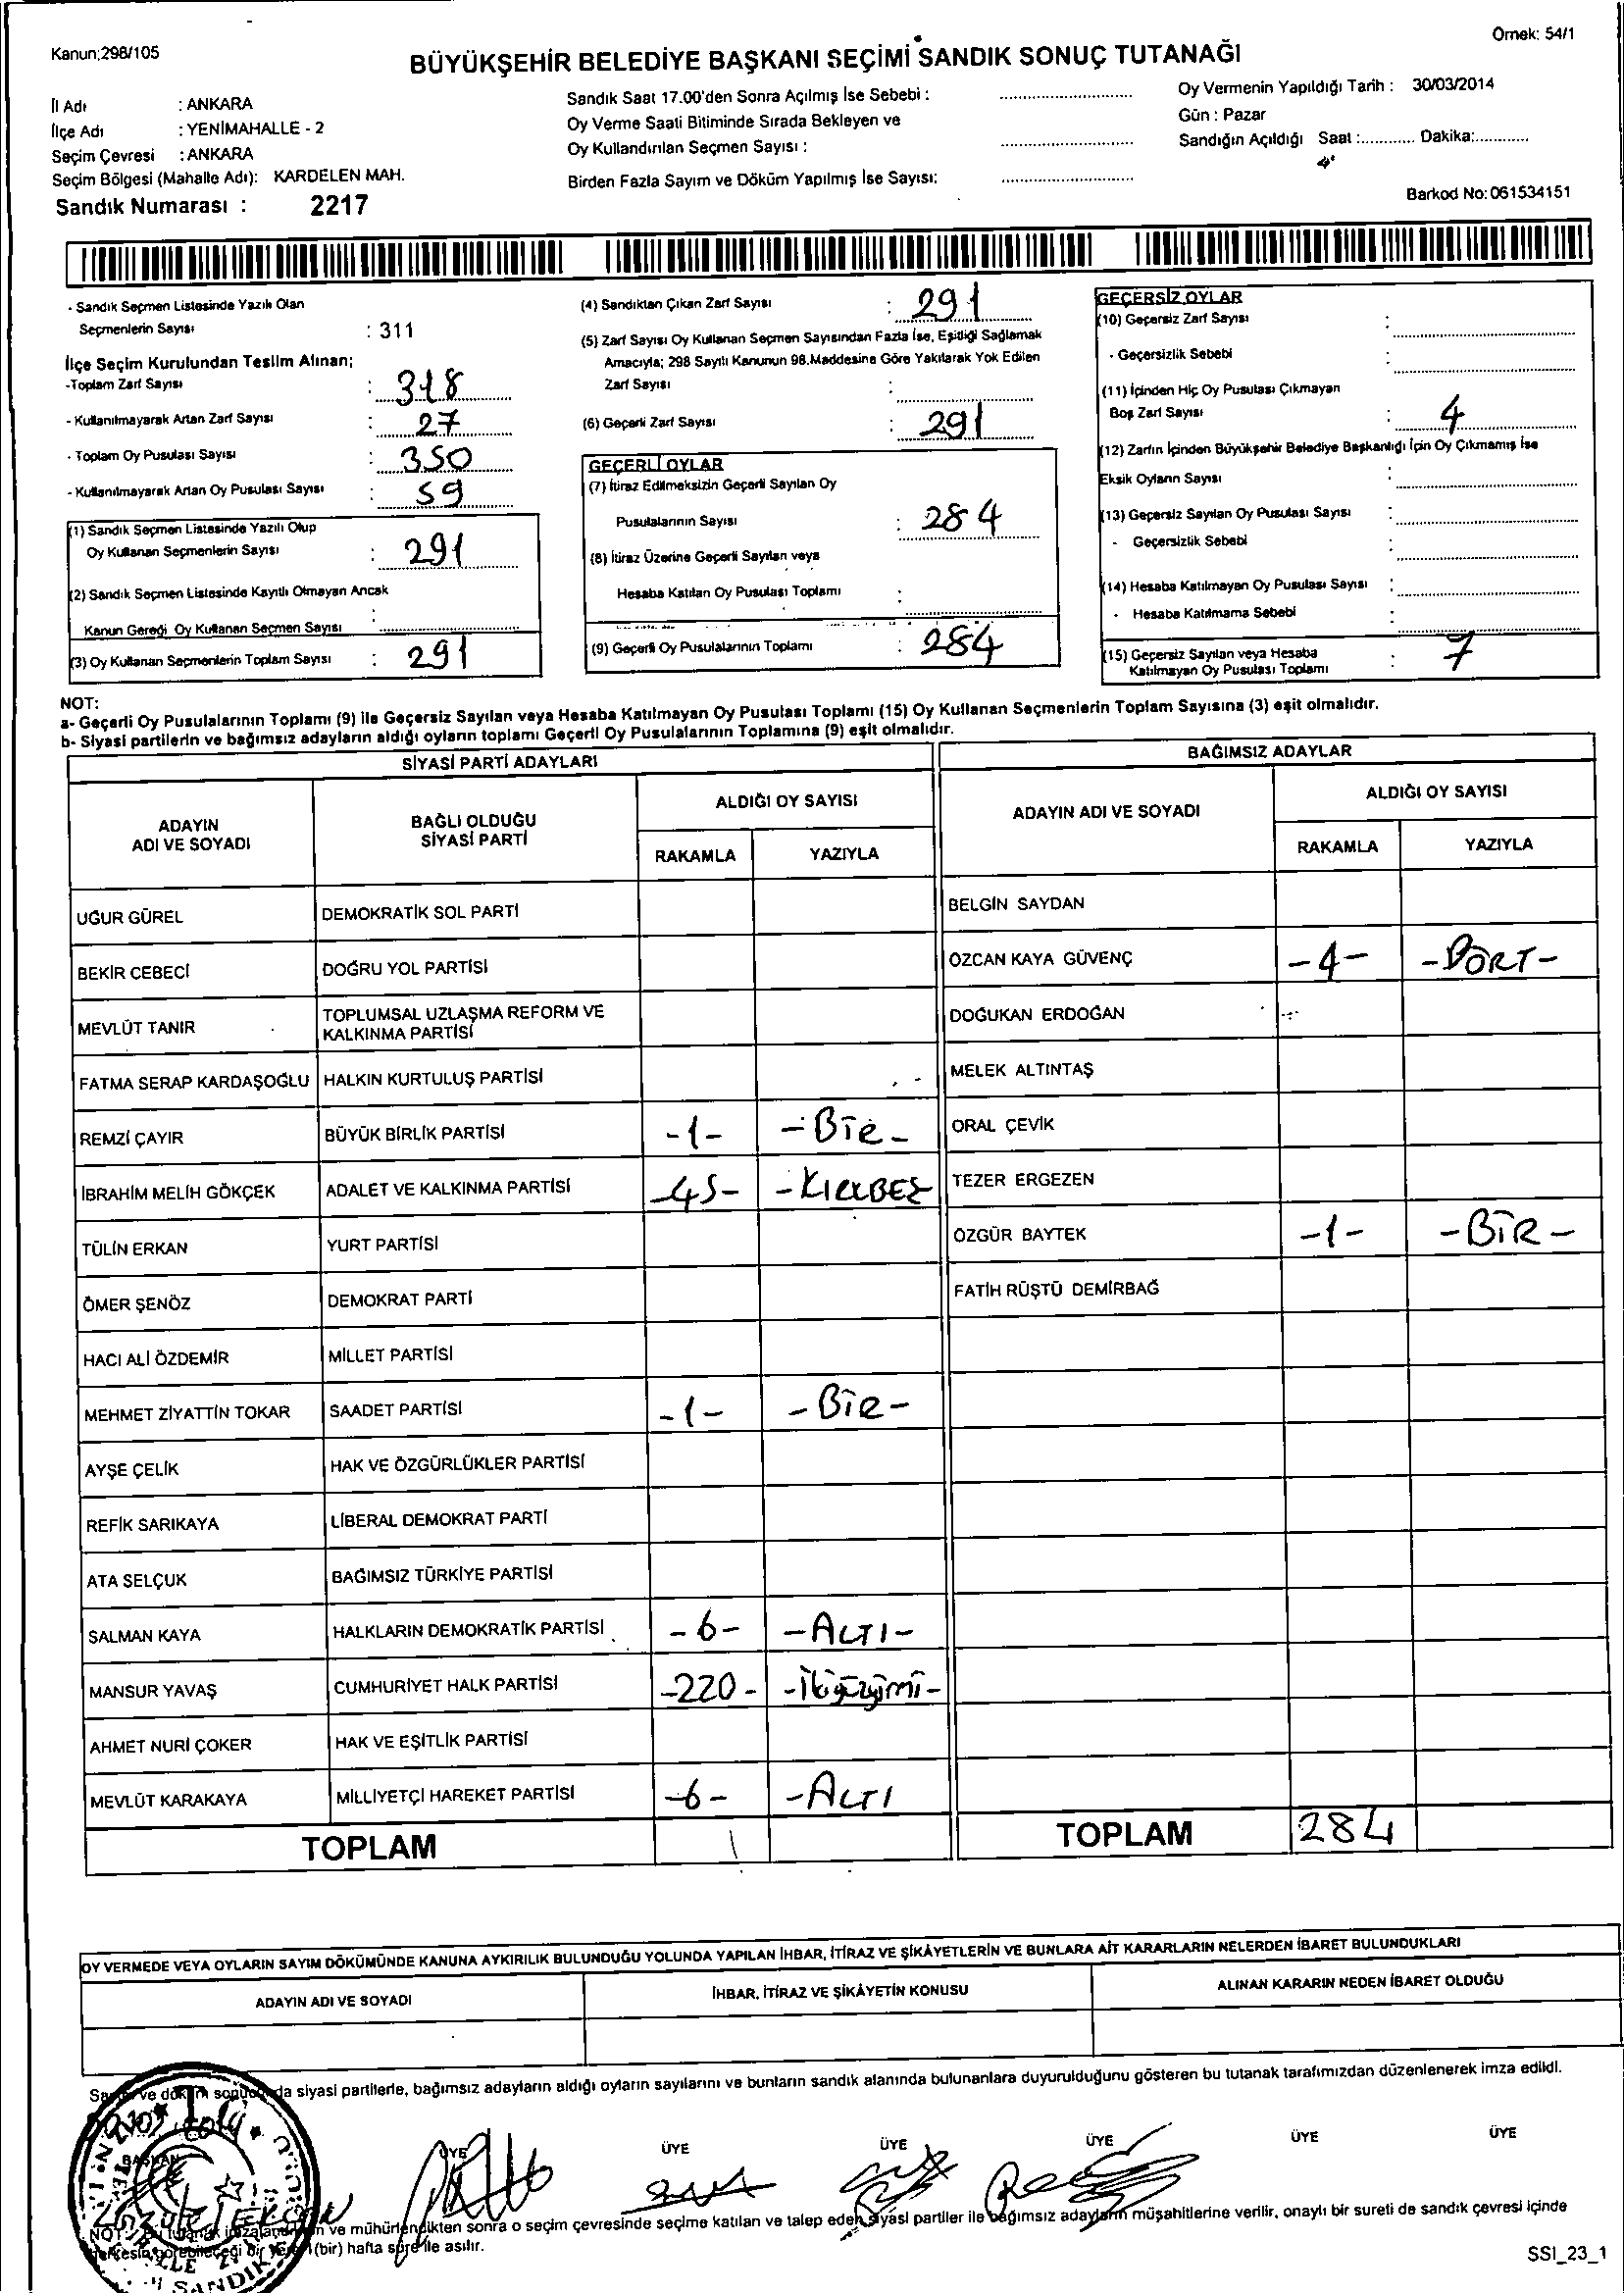 Kanun;298/105
Örnek: 54/1
BÜYÜKŞEHİR BELEDİYE BAŞKANI SEÇİMİ SANDIK SONUÇ TUTANAĞI
İl Adı : ANKARA
İlçe Adı : YENİMAHALLE - 2
Seçim Çevresi : ANKARA
Seçim Bölgesi (Mahalle Adı): KARDELEN MAH.
Sandık Numarası : 2217
Sandık Saat 17.00'den Sonra Açılmış İse Sebebi :
Oy Verme Saati Bitiminde Sırada Bekleyen ve
Oy Kullandırılan Seçmen Sayısı :
Birden Fazla Sayım ve Döküm Yapılmış İse Sayısı:
Oy Vermenin Yapıldığı Tarih : 30/03/2014
Gün : Pazar
Sandığın Açıldığı Saat :............ Dakika:............
Barkod No: 061534151
- Sandık Seçmen Listesinde Yazılı Olan
Seçmenlerin Sayısı : 311
İlçe Seçim Kurulundan Teslim Alınan;
-Toplam Zarf Sayısı : 318
- Kullanılmayarak Artan Zarf Sayısı : 27
- Toplam Oy Pusulası Sayısı : 350
- Kullanılmayarak Artan Oy Pusulası Sayısı : 59
(1) Sandık Seçmen Listesinde Yazılı Olup
Oy Kullanan Seçmenlerin Sayısı : 291
(2) Sandık Seçmen Listesinde Kayıtlı Olmayan Ancak
Kanun Gereği Oy Kullanan Seçmen Sayısı :
(3) Oy Kullanan Seçmenlerin Toplam Sayısı : 291
(4) Sandıktan Çıkan Zarf Sayısı : 291
(5) Zarf Sayısı Oy Kullanan Seçmen Sayısından Fazla İse, Eşitliği Sağlamak
Amacıyla; 298 Sayılı Kanunun 98.Maddesine Göre Yakılarak Yok Edilen
Zarf Sayısı :
(6) Geçerli Zarf Sayısı : 291
GEÇERLİ OYLAR
(7) İtiraz Edilmeksizin Geçerli Sayılan Oy
Pusulalarının Sayısı : 284
(8) İtiraz Üzerine Geçerli Sayılan veya
Hesaba Katılan Oy Pusulası Toplamı :
(9) Geçerli Oy Pusulalarının Toplamı : 284
GEÇERSİZ OYLAR
(10) Geçersiz Zarf Sayısı :
- Geçersizlik Sebebi :
(11) İçinden Hiç Oy Pusulası Çıkmayan
Boş Zarf Sayısı : 4
(12) Zarfın İçinden Büyükşehir Belediye Başkanlığı İçin Oy Çıkmamış İse
Eksik Oyların Sayısı :
(13) Geçersiz Sayılan Oy Pusulası Sayısı :
- Geçersizlik Sebebi :
(14) Hesaba Katılmayan Oy Pusulası Sayısı :
- Hesaba Katılmama Sebebi :
(15) Geçersiz Sayılan veya Hesaba
Katılmayan Oy Pusulası Toplamı : 7
NOT:
a- Geçerli Oy Pusulalarının Toplamı (9) ile Geçersiz Sayılan veya Hesaba Katılmayan Oy Pusulası Toplamı (15) Oy Kullanan Seçmenlerin Toplam Sayısına (3) eşit olmalıdır.
b- Siyasi partilerin ve bağımsız adayların aldığı oyların toplamı Geçerli Oy Pusulalarının Toplamına (9) eşit olmalıdır.
SİYASİ PARTİ ADAYLARI
ADAYIN ADI VE SOYADI
BAĞLI OLDUĞU SİYASİ PARTİ
ALDIĞI OY SAYISI
RAKAMLA YAZIYLA
UĞUR GÜREL DEMOKRATİK SOL PARTİ
BEKİR CEBECİ DOĞRU YOL PARTİSİ
MEVLÜT TANIR TOPLUMSAL UZLAŞMA REFORM VE KALKINMA PARTİSİ
FATMA SERAP KARDAŞOĞLU HALKIN KURTULUŞ PARTİSİ
REMZİ ÇAYIR BÜYÜK BİRLİK PARTİSİ -1- -BİR-
İBRAHİM MELİH GÖKÇEK ADALET VE KALKINMA PARTİSİ -45- -KIRKBEŞ
TÜLİN ERKAN YURT PARTİSİ
ÖMER ŞENÖZ DEMOKRAT PARTİ
HACI ALİ ÖZDEMİR MİLLET PARTİSİ
MEHMET ZİYATTİN TOKAR SAADET PARTİSİ -1- -BİR-
AYŞE ÇELİK HAK VE ÖZGÜRLÜKLER PARTİSİ
REFİK SARIKAYA LİBERAL DEMOKRAT PARTİ
ATA SELÇUK BAĞIMSIZ TÜRKİYE PARTİSİ
SALMAN KAYA HALKLARIN DEMOKRATİK PARTİSİ -6- -ALTI-
MANSUR YAVAŞ CUMHURİYET HALK PARTİSİ -220-
AHMET NURİ ÇOKER HAK VE EŞİTLİK PARTİSİ
MEVLÜT KARAKAYA MİLLİYETÇİ HAREKET PARTİSİ -6- -ALTI
TOPLAM
BAĞIMSIZ ADAYLAR
ADAYIN ADI VE SOYADI
ALDIĞI OY SAYISI
RAKAMLA YAZIYLA
BELGİN SAYDAN
ÖZCAN KAYA GÜVENÇ -4- -DÖRT-
DOĞUKAN ERDOĞAN
MELEK ALTINTAŞ
ORAL ÇEVİK
TEZER ERGEZEN
ÖZGÜR BAYTEK -1- -BİR-
FATİH RÜŞTÜ DEMİRBAĞ
TOPLAM 284
OY VERMEDE VEYA OYLARIN SAYIM DÖKÜMÜNDE KANUNA AYKIRILIK BULUNDUĞU YOLUNDA YAPILAN İHBAR, İTİRAZ VE ŞİKÂYETLERİN VE BUNLARA AİT KARARLARIN NELERDEN İBARET BULUNDUKLARI
ADAYIN ADI VE SOYADI
İHBAR, İTİRAZ VE ŞİKÂYETİN KONUSU
ALINAN KARARIN NEDEN İBARET OLDUĞU
ve döküm sonucunda siyasi partilerle, bağımsız adayların aldığı oyların sayılarını ve bunların sandık alanında bulunanlara duyurulduğunu gösteren bu tutanak tarafımızdan düzenlenerek imza edildi.
BAŞKAN ÜYE ÜYE ÜYE ÜYE ÜYE ÜYE
NOT: Bu tutanak imzalandıktan ve mühürlendikten sonra o seçim çevresinde seçime katılan ve talep eden siyasi partiler ile bağımsız adayların müşahitlerine verilir, onaylı bir sureti de sandık çevresi içinde
herkesin görebileceği bir yere 1 (bir) hafta süre ile asılır.
SSI_23_1